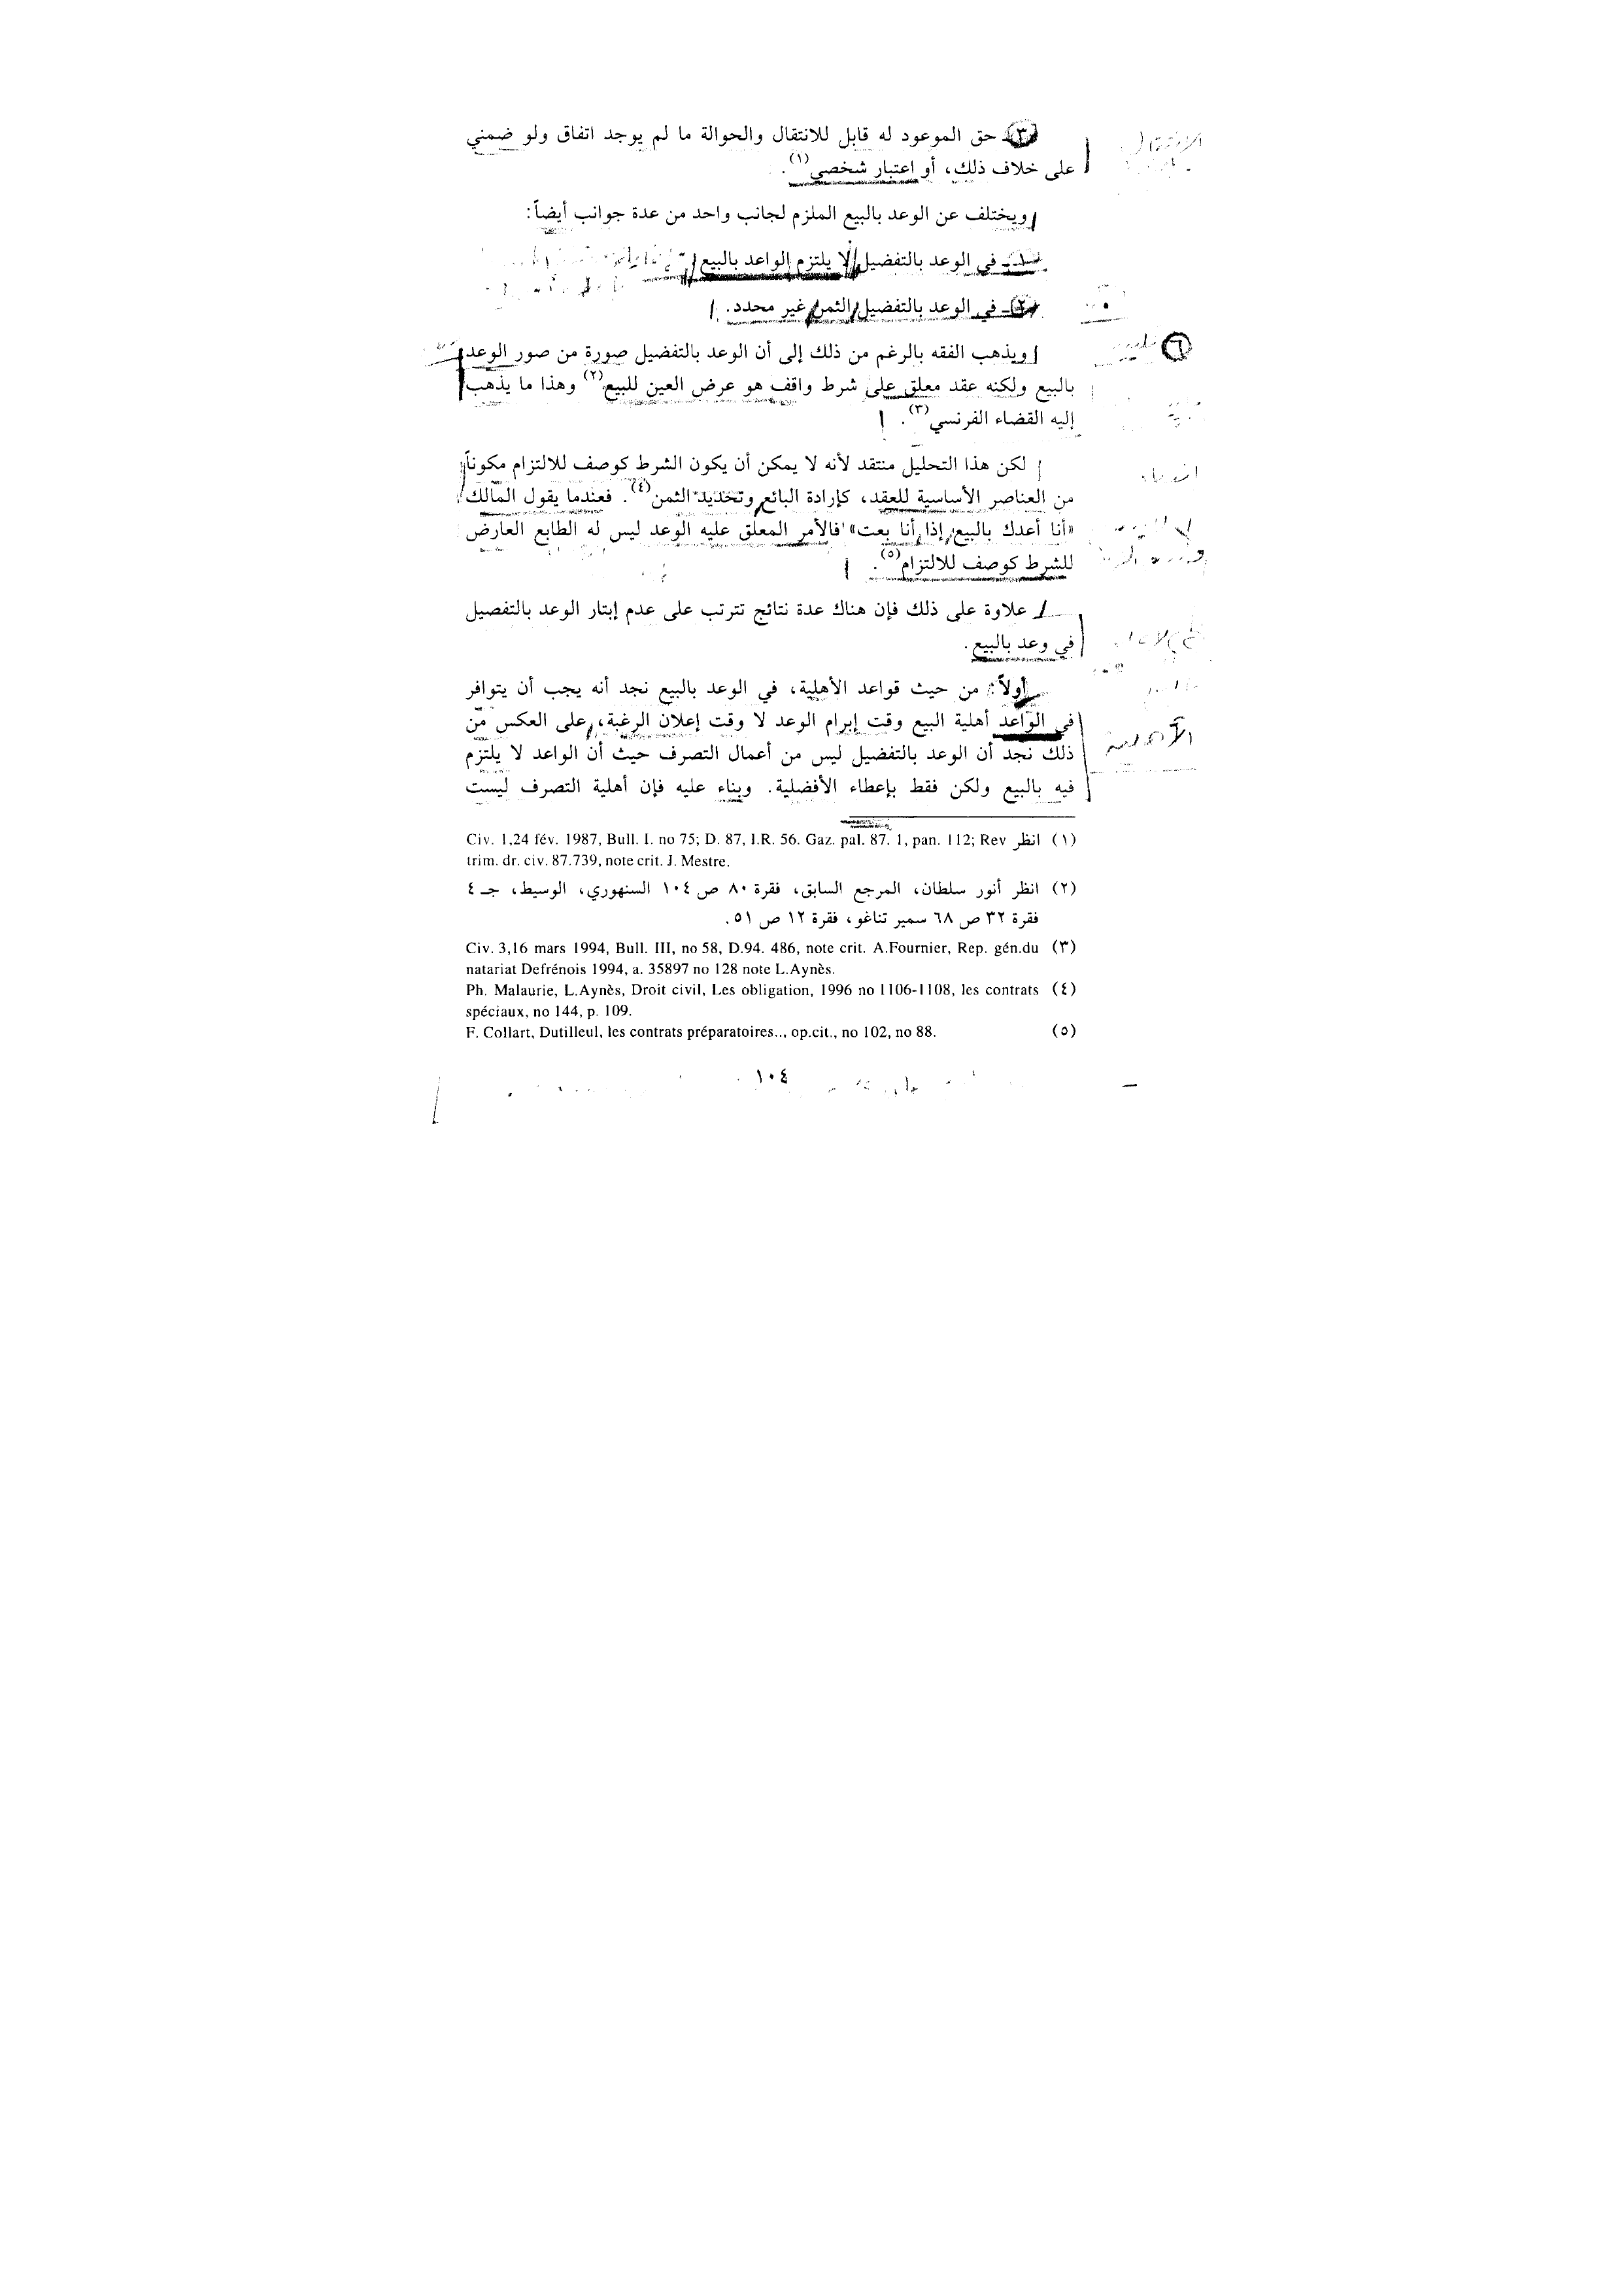 ٣ـ حق الموعود له قابل للانتقال والحوالة ما لم يوجد اتفاق ولو ضمني
على خلاف ذلك، أو اعتبار شخصي(١).
ويختلف عن الوعد بالبيع الملزم لجانب واحد من عدة جوانب أيضاً:
١ـ في الوعد بالتفضيل لا يلتزم الواعد بالبيع
٢ـ في الوعد بالتفضيل الثمن غير محدد.
ويذهب الفقه بالرغم من ذلك إلى أن الوعد بالتفضيل صورة من صور الوعد
بالبيع ولكنه عقد معلق على شرط واقف هو عرض العين للبيع(٢) وهذا ما يذهب
إليه القضاء الفرنسي(٣).
لكن هذا التحليل منتقد لأنه لا يمكن أن يكون الشرط كوصف للالتزام مكوناً
من العناصر الأساسية للعقد، كإرادة البائع وتحديد الثمن(٤). فعندما يقول المالك
«أنا أعدك بالبيع إذا أنا بعت» فالأمر المعلق عليه الوعد ليس له الطابع العارض
للشرط كوصف للالتزام(٥).
علاوة على ذلك فإن هناك عدة نتائج تترتب على عدم إبتار الوعد بالتفضيل
في وعد بالبيع.
أولاً: من حيث قواعد الأهلية، في الوعد بالبيع نجد أنه يجب أن يتوافر
في الواعد أهلية البيع وقت إبرام الوعد لا وقت إعلان الرغبة، على العكس من
ذلك نجد أن الوعد بالتفضيل ليس من أعمال التصرف حيث أن الواعد لا يلتزم
فيه بالبيع ولكن فقط بإعطاء الأفضلية. وبناء عليه فإن أهلية التصرف ليست
الأهلية
(١) انظر Civ. 1,24 fév. 1987, Bull. I. no 75; D. 87, I.R. 56. Gaz. pal. 87. 1, pan. 112; Rev
trim. dr. civ. 87.739, note crit. J. Mestre.
(٢) انظر أنور سلطان، المرجع السابق، فقرة ٨٠ ص ١٠٤ السنهوري، الوسيط، جـ ٤
فقرة ٣٢ ص ٦٨ سمير تناغو، فقرة ١٢ ص ٥١.
(٣) Civ. 3,16 mars 1994, Bull. III, no 58, D.94. 486, note crit. A.Fournier, Rep. gén.du
natariat Defrénois 1994, a. 35897 no 128 note L.Aynès.
(٤) Ph. Malaurie, L.Aynès, Droit civil, Les obligation, 1996 no 1106-1108, les contrats
spéciaux, no 144, p. 109.
(٥) F. Collart, Dutilleul, les contrats préparatoires.., op.cit., no 102, no 88.
١٠٤